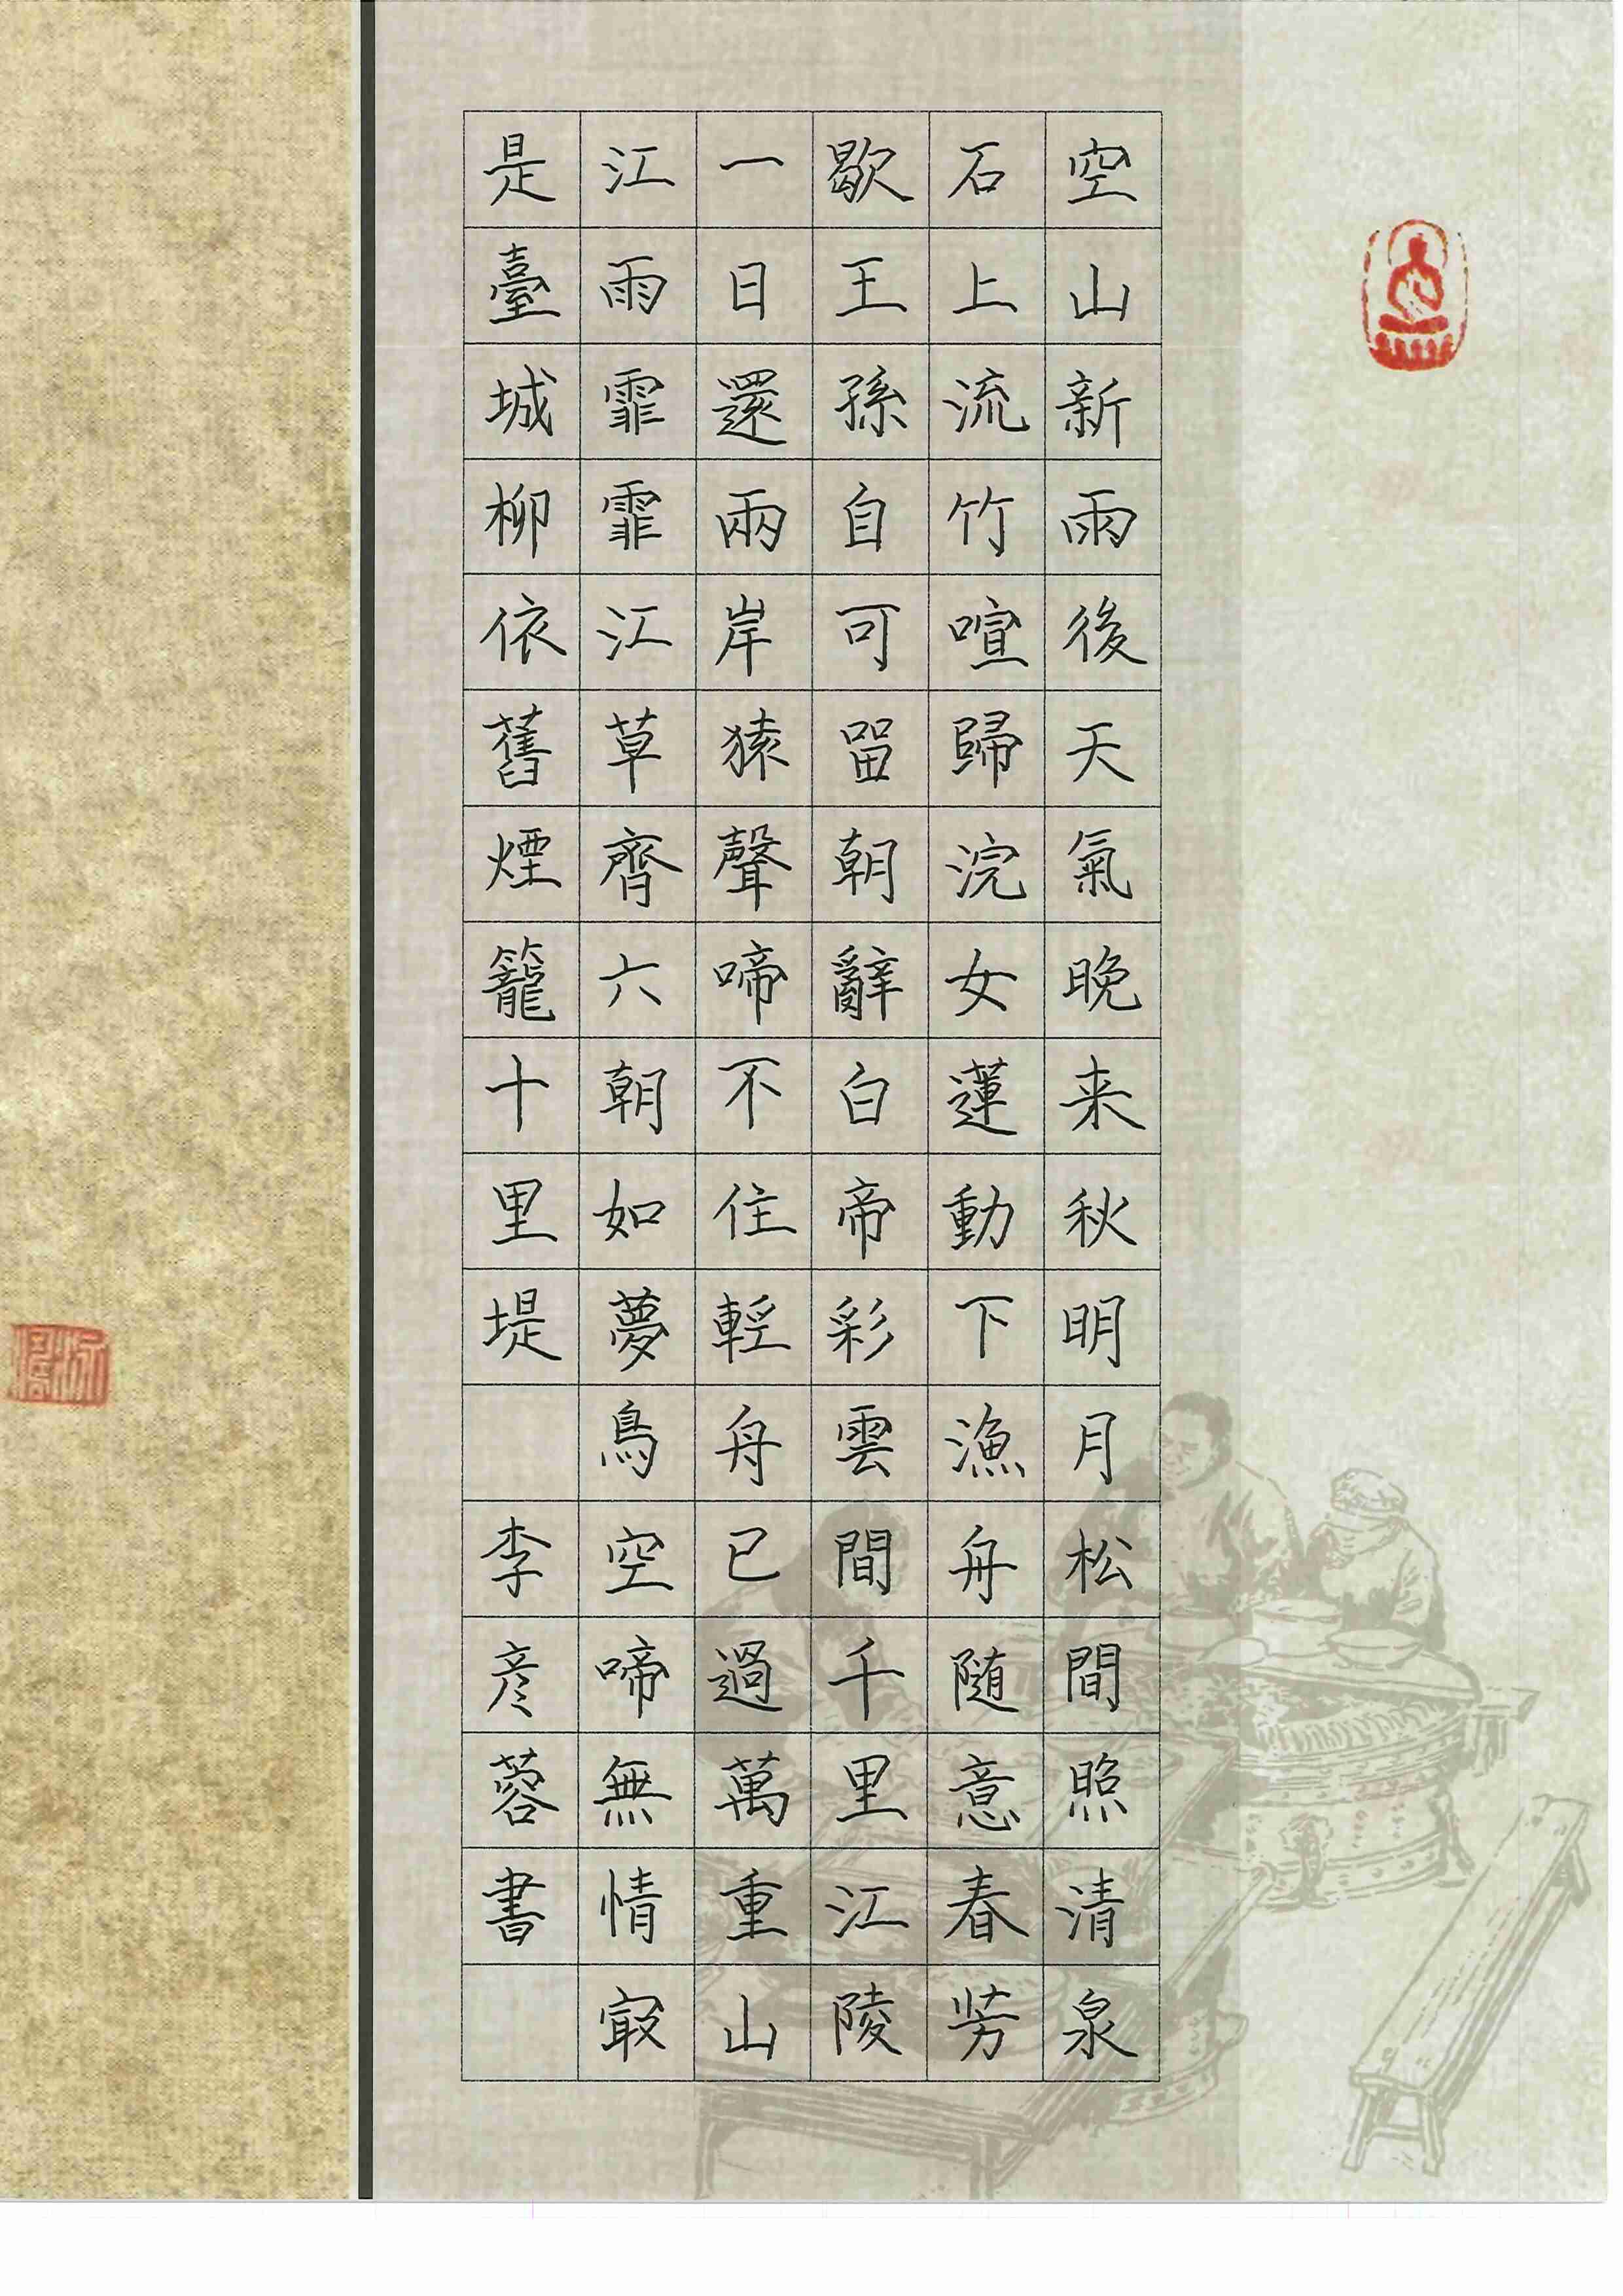 空山新雨後天氣晚来秋明月松間照清泉
石上流竹喧歸浣女蓮動下漁舟随意春芳
歇王孫自可留朝辭白帝彩雲間千里江陵
一日還兩岸猿聲啼不住輕舟已過萬重山
江雨霏霏江草齊六朝如夢鳥空啼無情寂
是臺城柳依舊煙籠十里堤 李彦蓉書